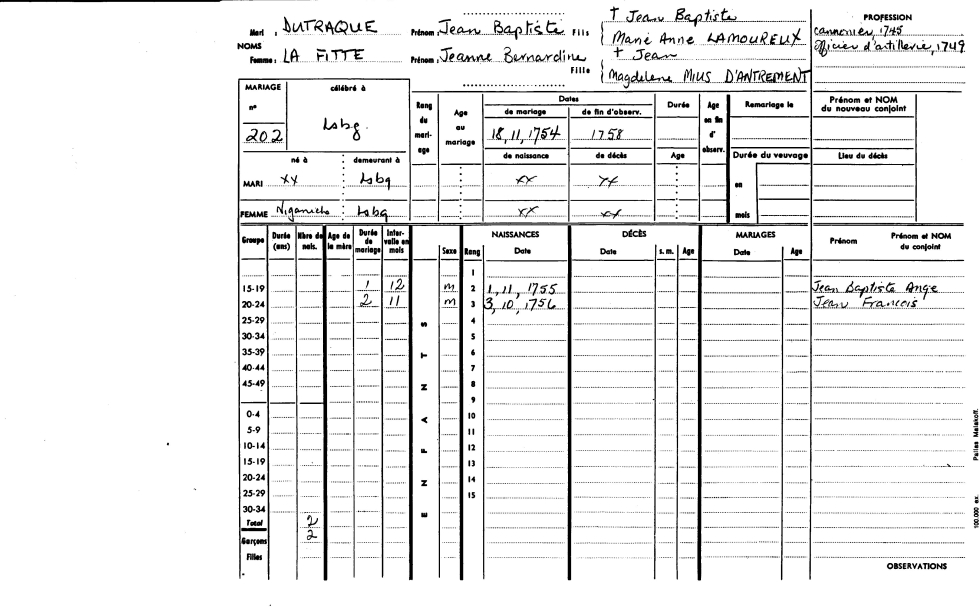 † Jean Baptiste
Mari : DUTRAQUE Prénom : Jean Baptiste Fils Marie Anne LAMOUREUX
NOMS
Femme : LA FITTE Prénom : Jeanne Bernardine Fille † Jean
Magdelene MIUS D'ANTREMENT
PROFESSION
cannonier, 1745
officier d'artillerie, 1749
MARIAGE célébré à
n°
202 Lsbg.
Rang du mariage Age au mariage Dates Durée Age en fin d' observ. Remariage le Prénom et NOM du nouveau conjoint
de mariage de fin d'observ.
18, 11, 1754 1758
né à demeurant à de naissance de décès Age Durée du veuvage Lieu du décès
MARI xx Lsbg xx xx en
FEMME Niganiche Lsbg xx xx mois
Groupe Durée (ans) Nbre de nais. Age de la mère Durée de mariage Intervalle en mois Sexe Rang NAISSANCES Date DÉCÈS Date s. m. Age MARIAGES Date Age Prénom Prénom et NOM du conjoint
ENFANTS
1
15-19 1 12 m 2 1, 11, 1755 Jean Baptiste Ange
20-24 2 11 m 3 3, 10, 1756 Jean Francois
25-29 4
30-34 5
35-39 6
40-44 7
45-49 8
9
0-4 10
5-9 11
10-14 12
15-19 13
20-24 14
25-29 15
30-34
Total 2
Garçons 2
Filles
OBSERVATIONS
100.000 ex.